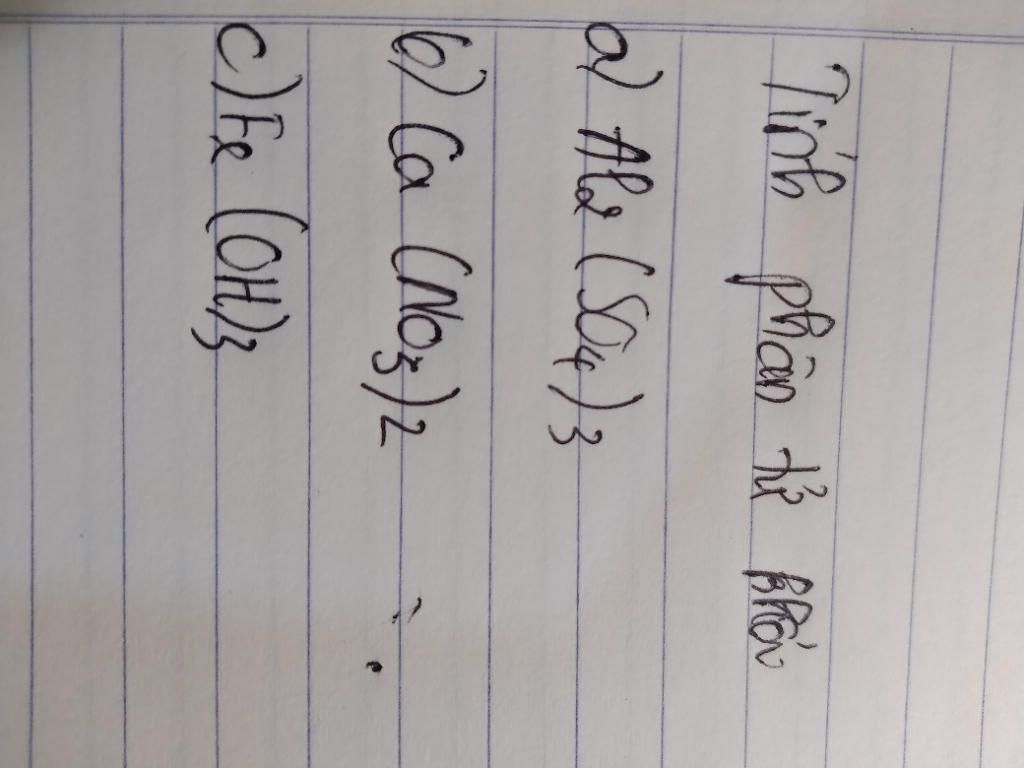 Tính phân tử khối
a) Al2(SO4)3
b) Ca (NO3)2
c) Fe (OH)3